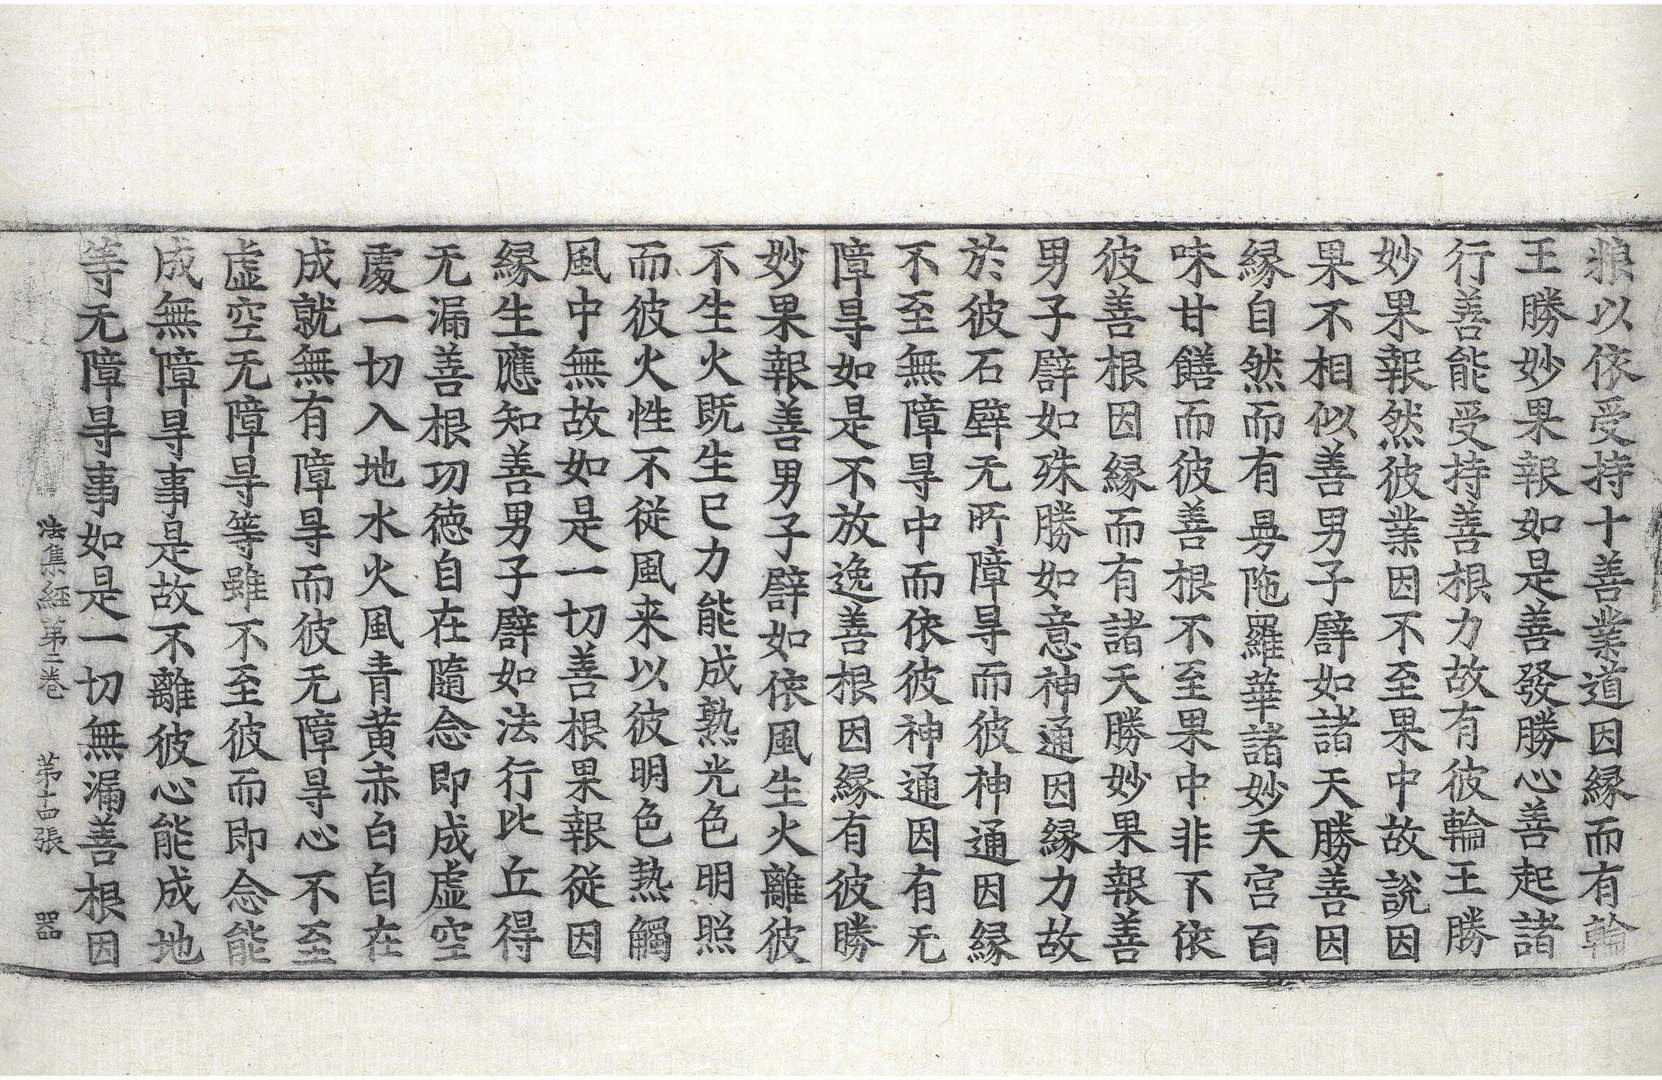 狼以依受持十善業道因緣而有輪
王勝妙果報如是善發勝心善起諸
行善能受持善根力故有彼輪王勝
妙果報然彼業因不至果中故說因
果不相似善男子譬如諸天勝善因
緣自然而有曼陁羅華諸妙天宮百
味甘饍而彼善根不至果中非不依
彼善根因緣而有諸天勝妙果報善
男子譬如殊勝如意神通因緣力故
於彼石壁无所障㝵而彼神通因緣
不至無障㝵中而依彼神通因有无
障㝵如是不放逸善根因緣有彼勝
妙果報善男子譬如依風生火離彼
不生火既生已力能成熟光色明照
而彼火性不從風来以彼明色熱觸
風中無故如是一切善根果報從因
緣生應知善男子譬如法行比丘得
无漏善根功德自在隨念即成虛空
處一切入地水火風青黃赤白自在
成就無有障㝵而彼无障㝵心不至
虛空无障㝵等雖不至彼而即念能
成無障㝵事是故不離彼心能成地
等无障㝵事如是一切無漏善根因
法集經第二卷 第十四張 器